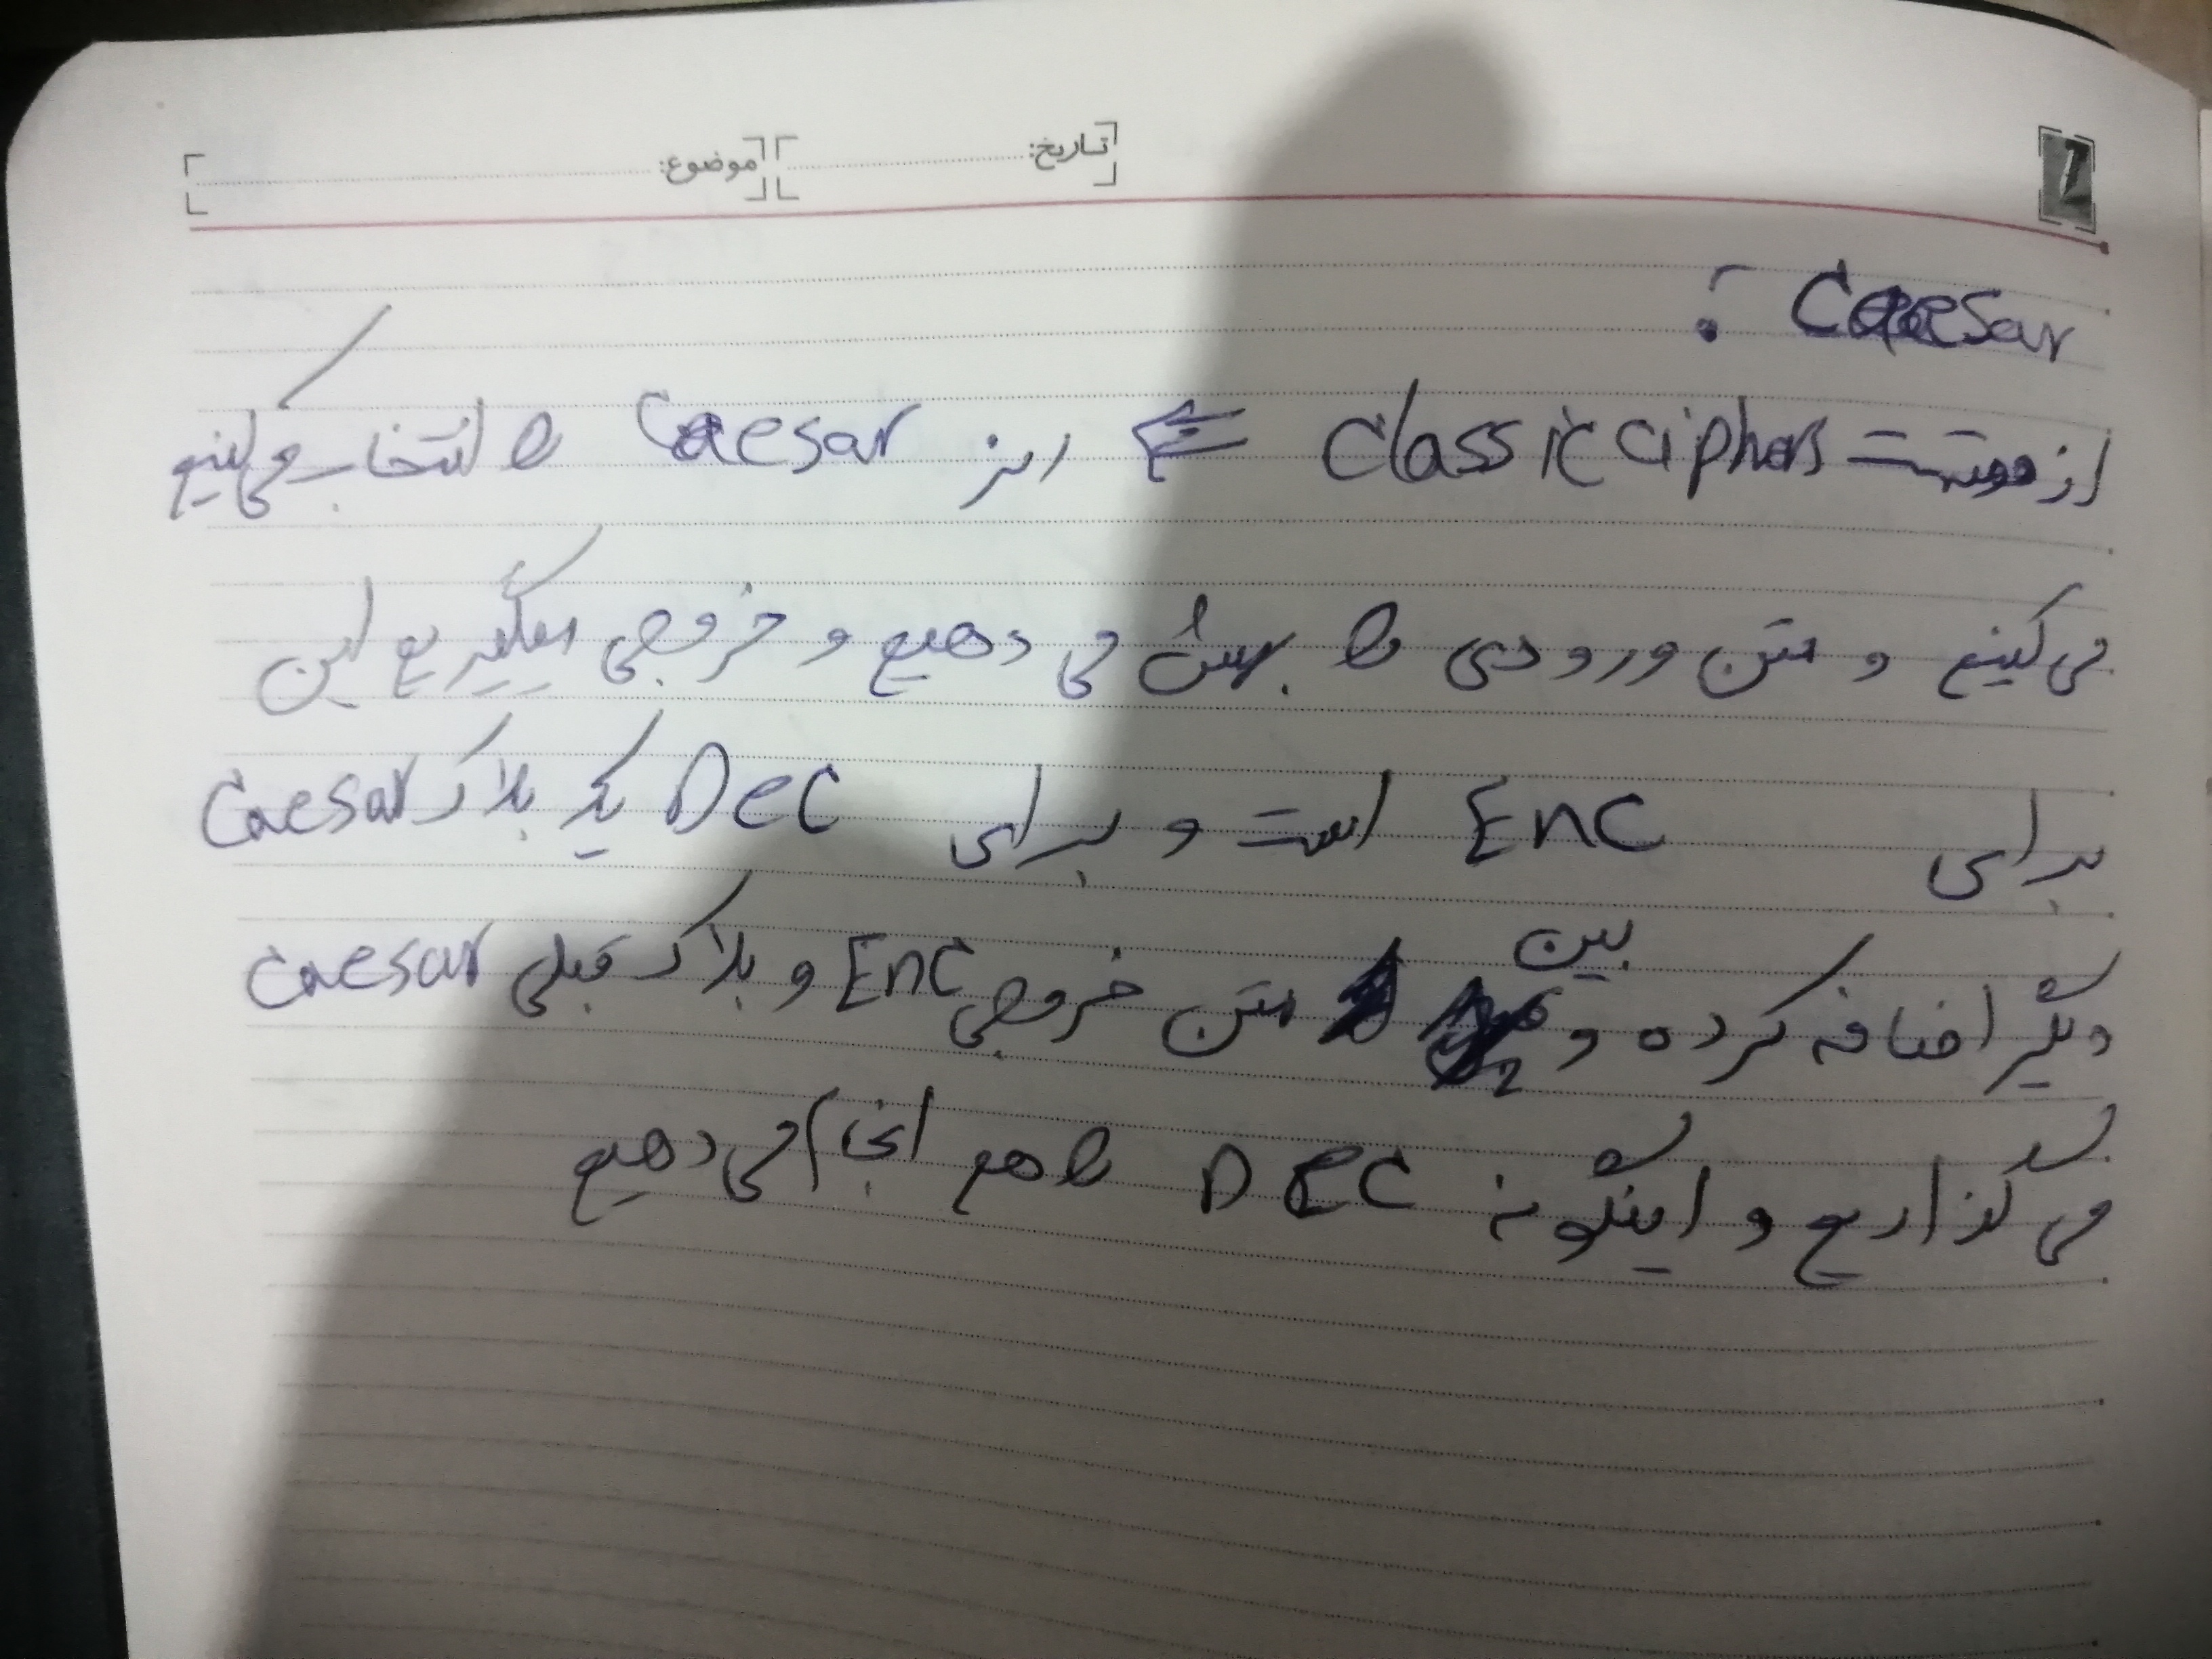 تاریخ: موضوع:
Caesar :
از قسمت Classic ciphers ⇐ رمز Caesar را انتخاب می‌کنیم
می‌کنیم و متن ورودی را بهش می دهیم و خروجی میگیریم این
برای Enc است و برای Dec یک بلاک Caesar
دیگر اضافه کرده و بین متن خروجی Enc و بلاک قبلی Caesar
می گذاریم و اینگونه Dec را هم انجام می دهیم